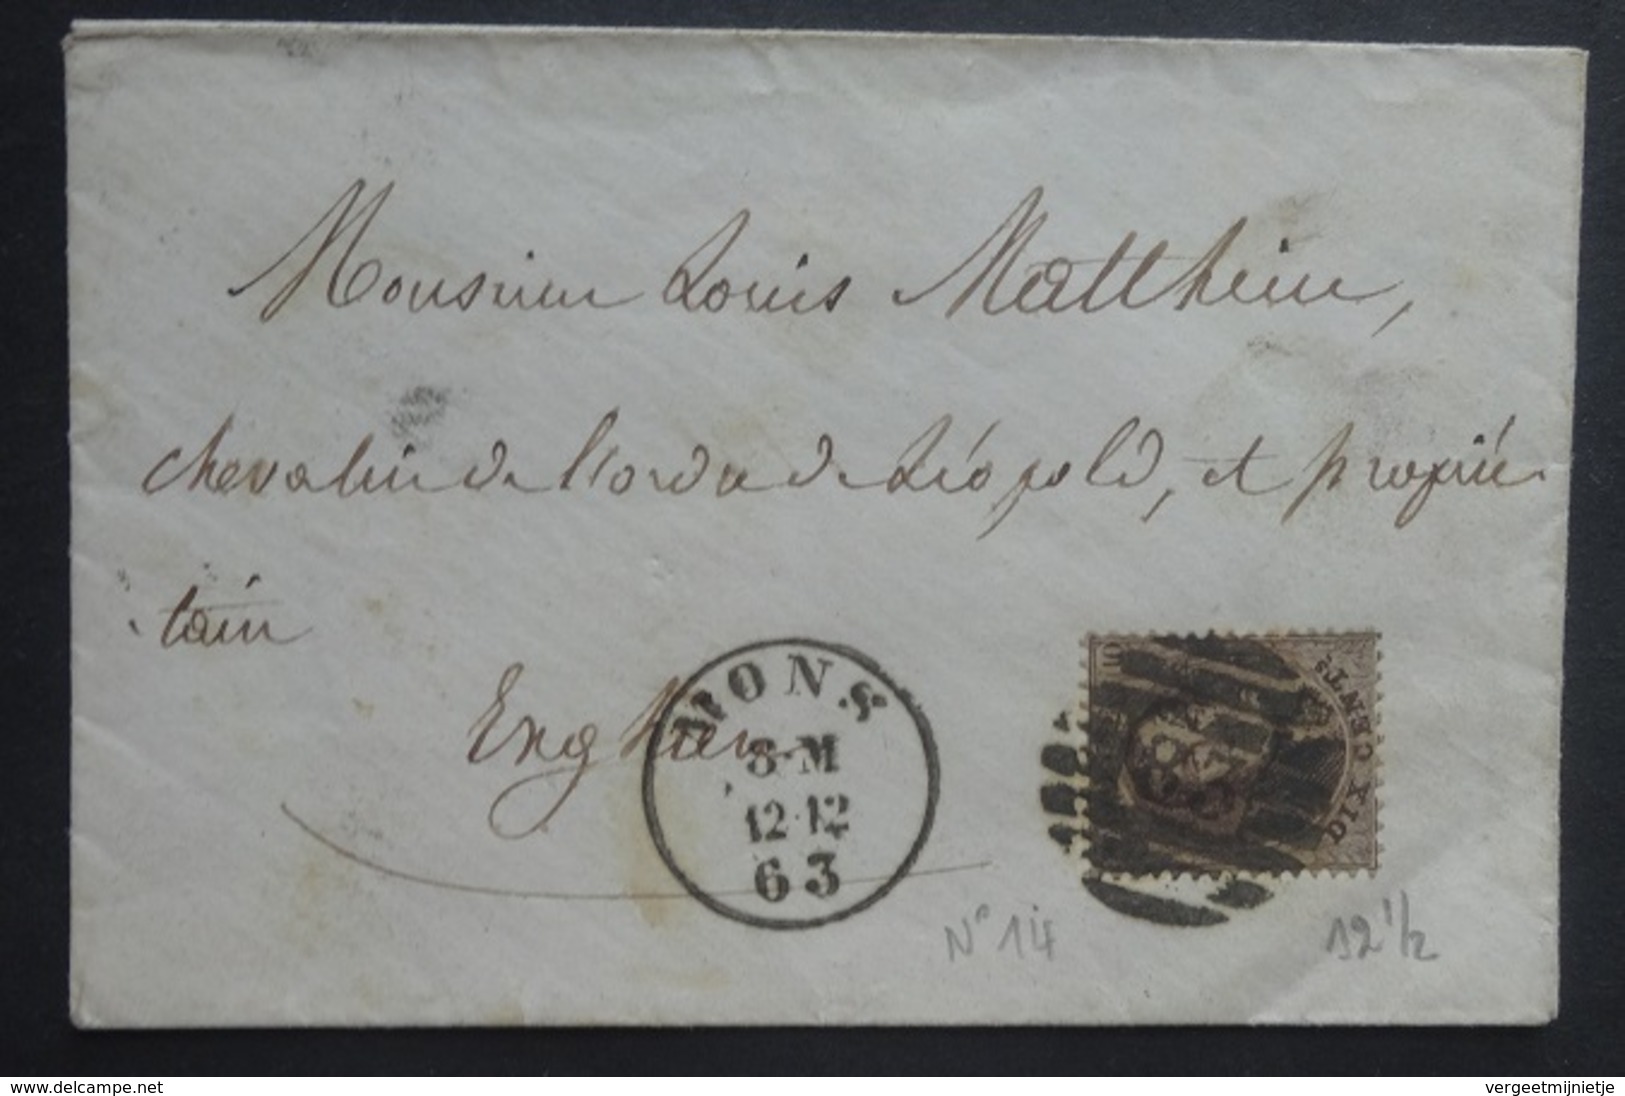 Monsieur Louis Matthieu,
chevalier de l'ordre de Léopold, et proprié
taire
Enghien
MONS
8-M
12·12
63
10
DIX CENTS
N° 14
12 1/2
© www.delcampe.net
vergeetmijnietje